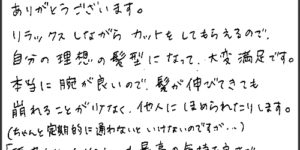 ありがとうございます。
リラックスしながらカットをしてもらえるので、
自分の理想の髪型になって、大変満足です。
本当に腕が良いので、髪が伸びてきても
崩れることが少なく、他人にほめられたりします。
(ちゃんと定期的に通わないといけないのですが・・)